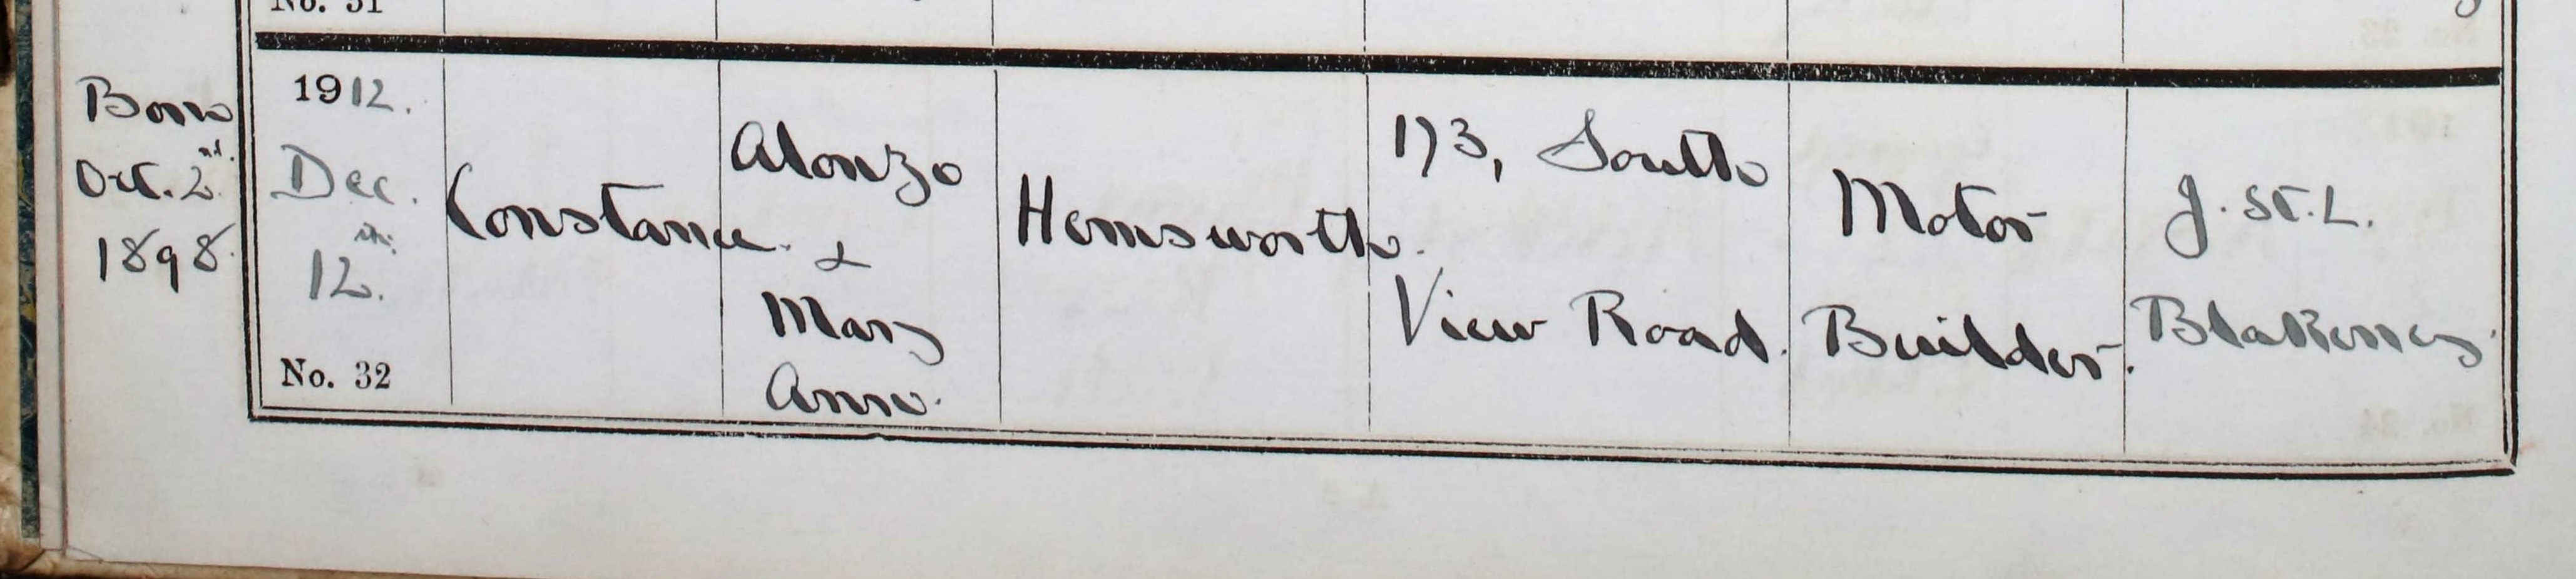 No. 31
Born
Oct. 2nd.
1898.
1912.
Dec.
12th.
No. 32
Constance.
Alonzo
&
Mary
Ann.
Hemsworth.
173, South
View Road.
Motor
Builder.
J. St. L.
Blakeney.